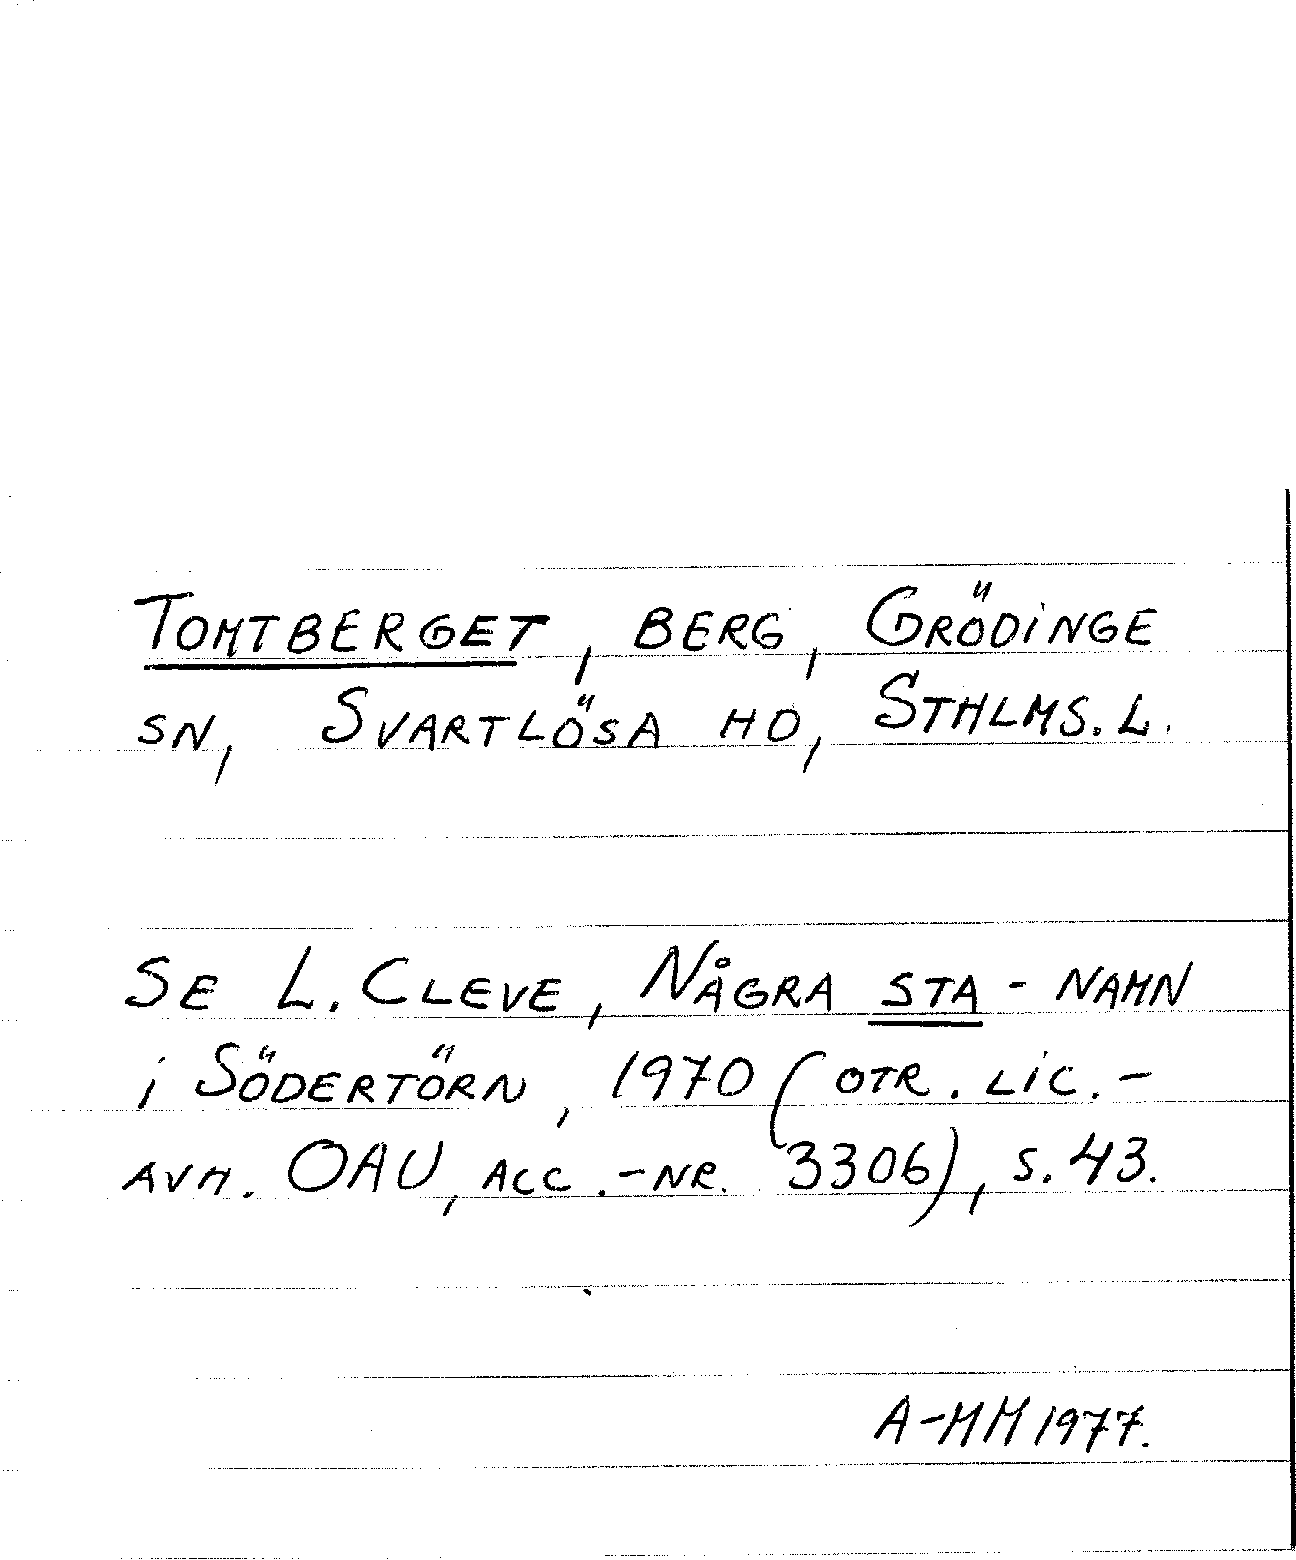 TOMTBERGET, BERG, GRÖDINGE
SN, SVARTLÖSA HD, STHLMS. L.
SE L. CLEVE, NÅGRA STA-NAMN
i SÖDERTÖRN, 1970 (OTR. LIC.-
AVH. OAU, ACC.-NR. 3306), S. 43.
A-MM 1977.